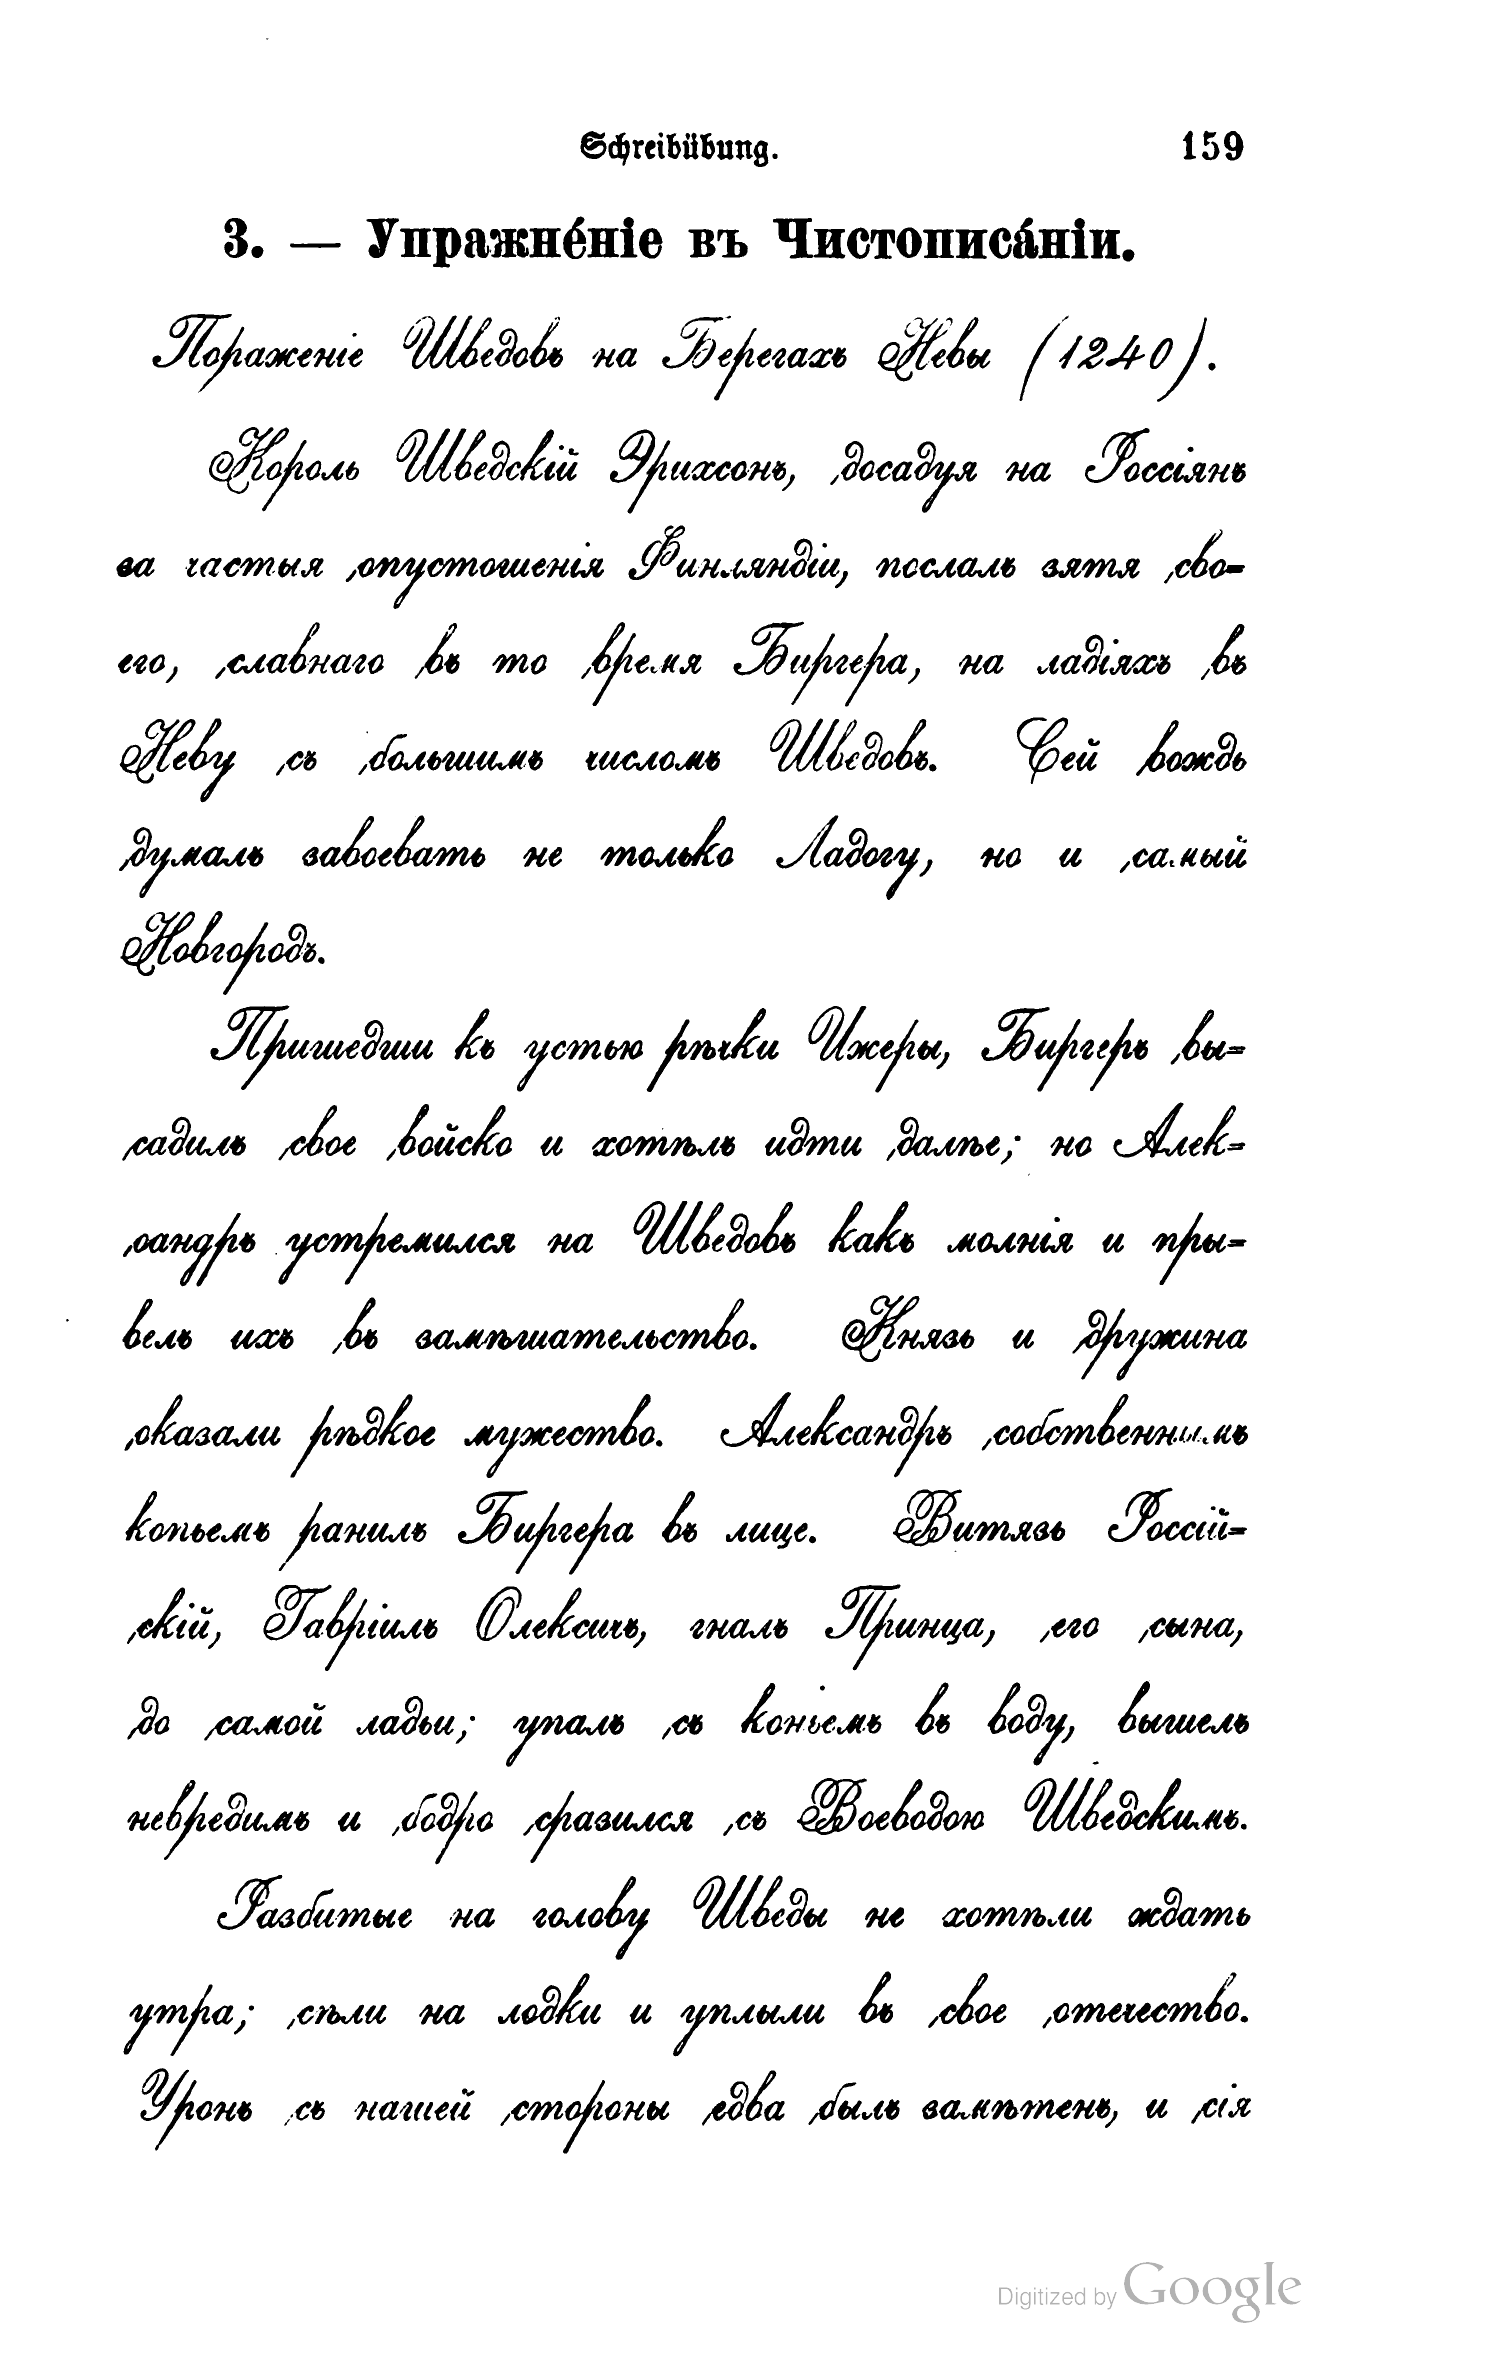 Schreibübung. 159
3. — Упражне́ніе въ Чистописа́ніи.
Пораженіе Шведовъ на Берегахъ Невы (1240).
Король Шведскій Эрихсонъ, досадуя на Россіянъ
за частыя опустошенія Финляндіи, послалъ зятя сво=
его, славнаго въ то время Биргера, на ладіяхъ въ
Неву съ большимъ числомъ Шведовъ. Сей вождь
думалъ завоевать не только Ладогу, но и самый
Новгородъ.
Пришедши къ устью рѣчки Ижеры, Биргеръ вы=
садилъ свое войско и хотѣлъ идти далѣе; но Алек=
сандръ устремился на Шведовъ какъ молнія и при=
велъ ихъ въ замѣшательство. Князь и дружина
оказали рѣдкое мужество. Александръ собственнымъ
копьемъ ранилъ Биргера въ лице. Витязь Россій=
скій, Гавріилъ Олексичъ, гналъ Принца, его сына,
до самой ладьи; упалъ съ коньемъ въ воду, вышелъ
невредимъ и бодро сразился съ Воеводою Шведскимъ.
Разбитые на голову Шведы не хотѣли ждать
утра; сѣли на лодки и уплыли въ свое отечество.
Уронъ съ нашей стороны едва былъ замѣтенъ, и сія
Digitized by Google